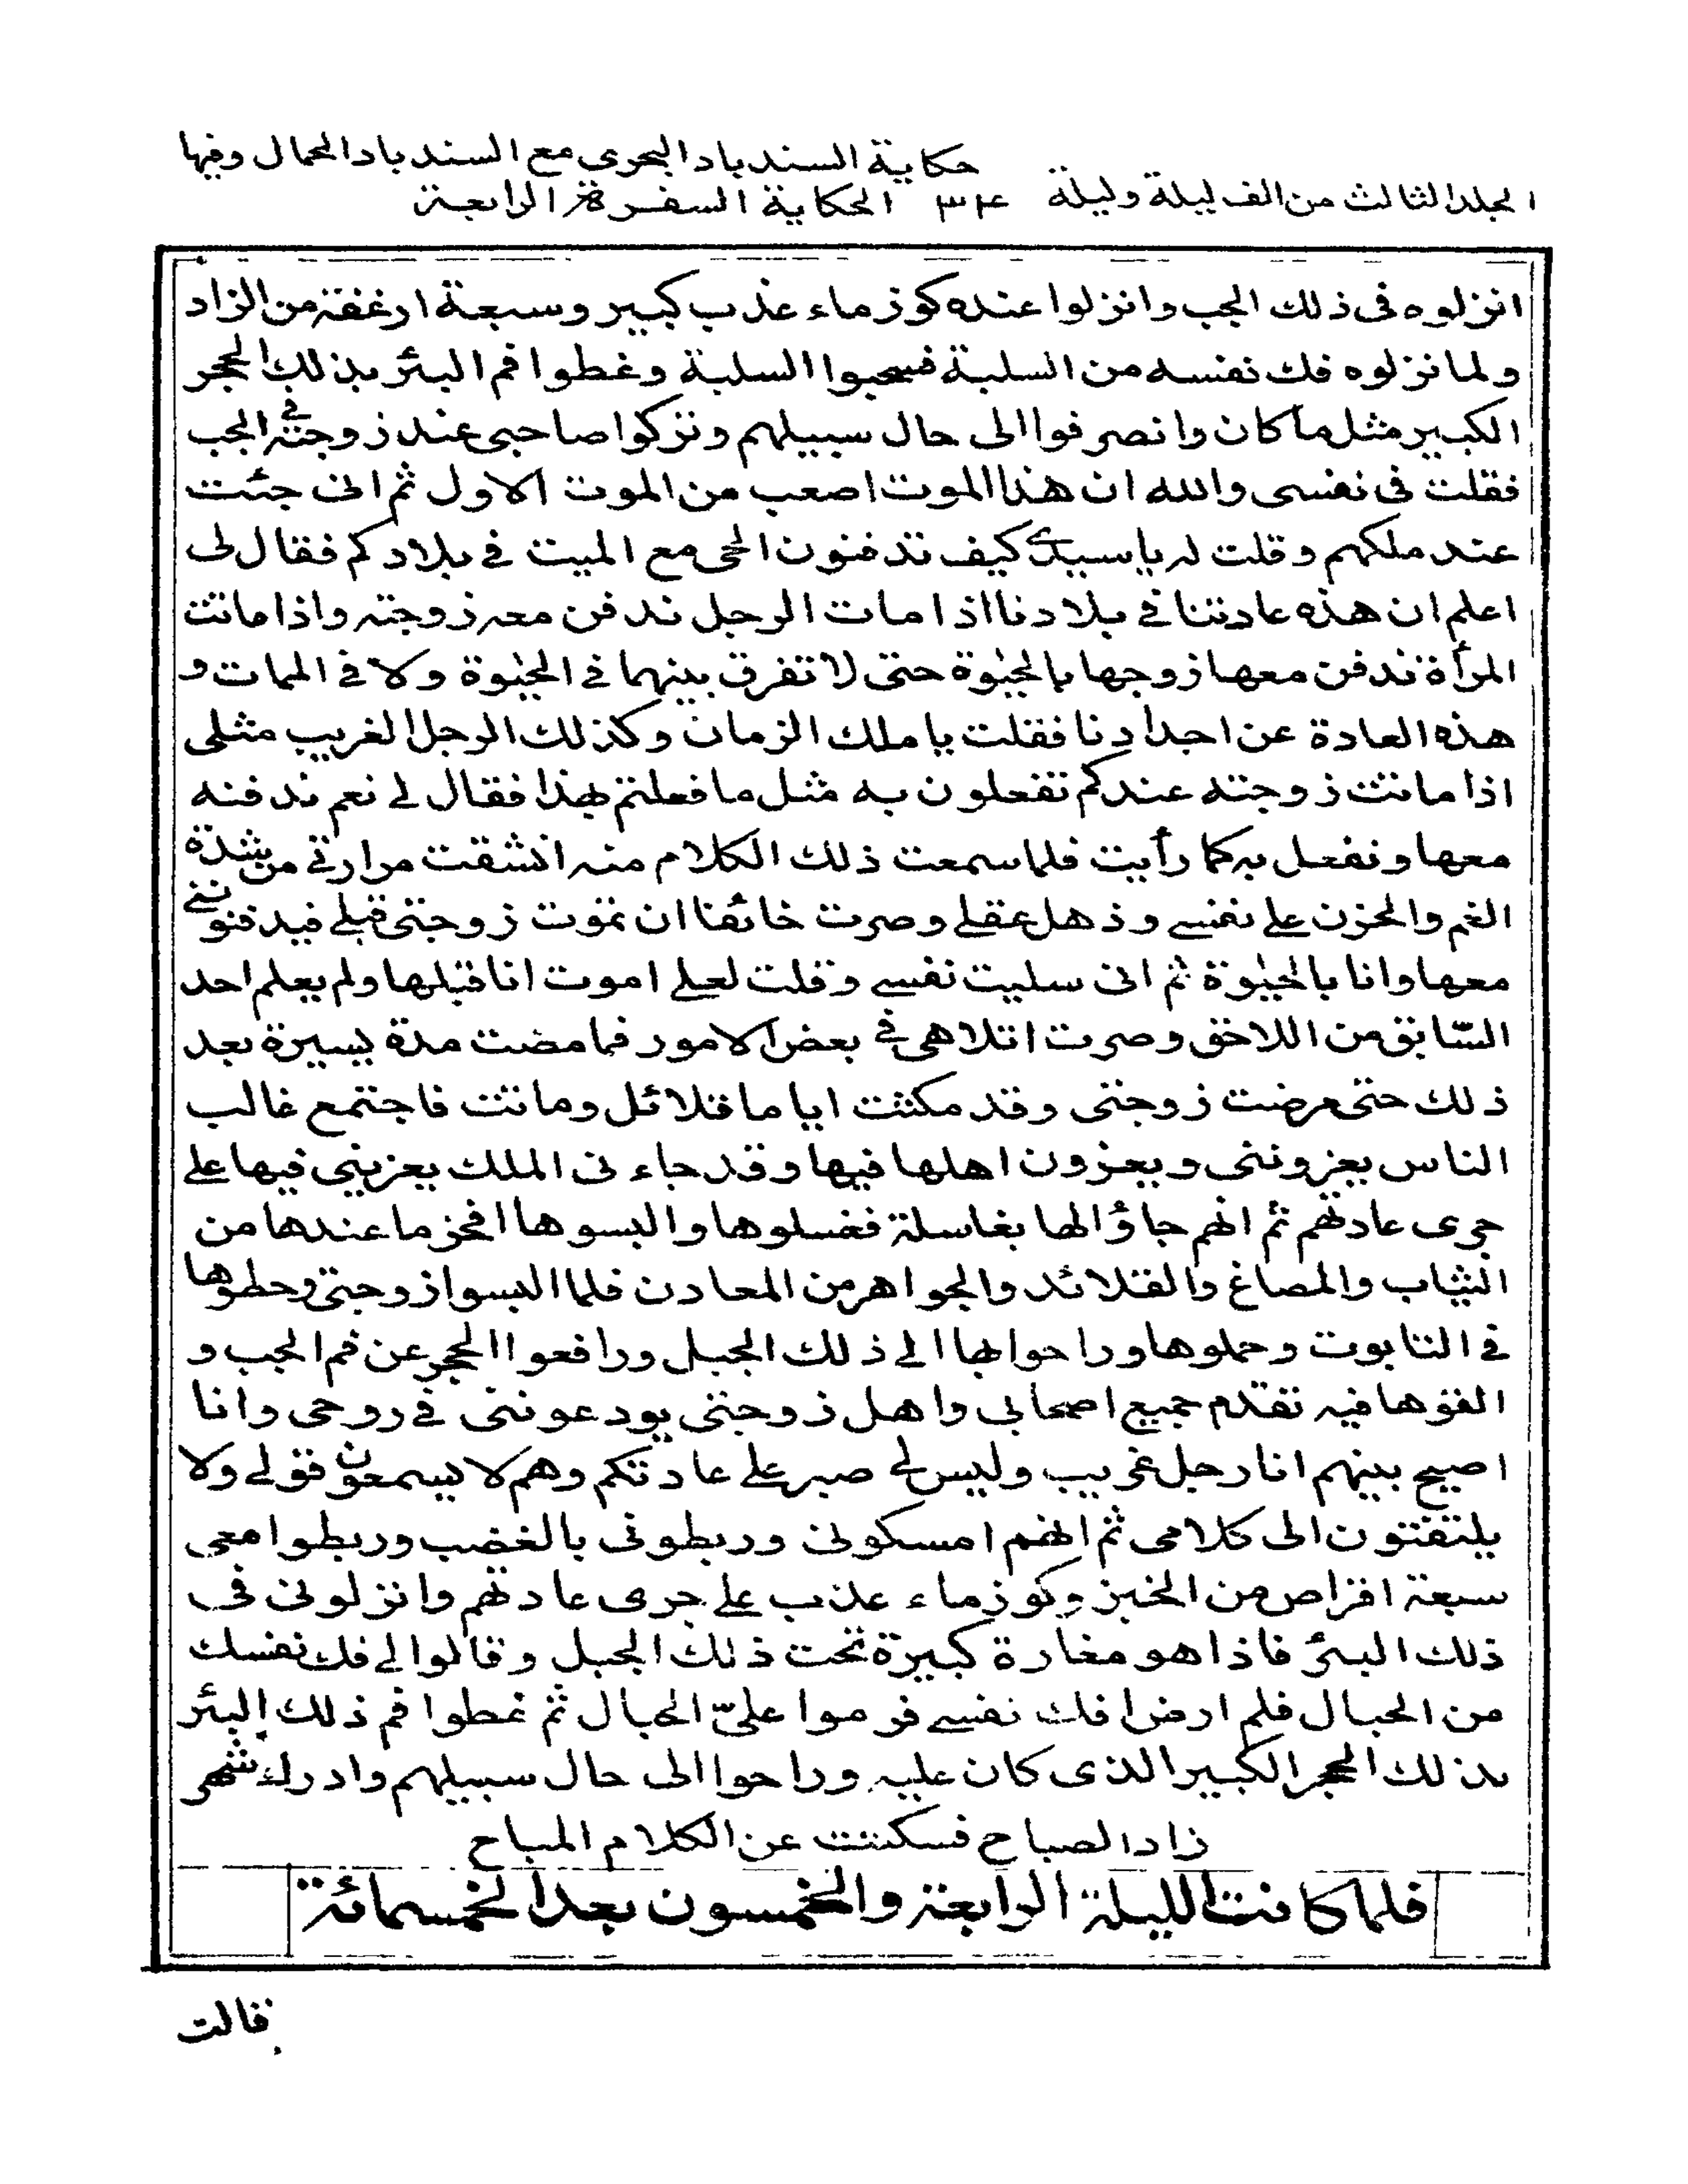 حكاية السندباد البحرى مع السندباد الحمال وفيها
المجلد الثالث من الف ليلة وليلة ٣٤ الحكاية السفرة الرابعة
انزلوه فى ذلك الجب وانزلوا عنده كوز ماء عذب كبير وسبعة ارغفة من الزاد
ولما نزلوه فك نفسه من السلبة فسحبوا السلبة وغطوا فم البئر بذلك الحجر
الكبير مثل ما كان وانصرفوا الى حال سبيلهم وتركوا صاحبى عند زوجته فى الجب
فقلت فى نفسى والله ان هذا الموت اصعب من الموت الاول ثم انى جئت
عند ملكهم وقلت له يا سيدى كيف تدفنون الحى مع الميت فى بلادكم فقال لى
اعلم ان هذه عادتنا فى بلادنا اذا مات الرجل ندفن معه زوجته واذا ماتت
المرأة ندفن معها زوجها بالحيٰوة حتى لا تفرق بينهما فى الحيٰوة ولا فى الممات و
هذه العادة عن اجدادنا فقلت يا ملك الزمان وكذلك الرجل الغريب مثلى
اذا ماتت زوجته عندكم تفعلون به مثل ما فعلتم بهذا فقال لى نعم ندفنه
معها ونفعل به كما رأيت فلما سمعت ذلك الكلام منه انشقت مرارتى من شدة
الغم والحزن على نفسى وذهل عقلى وصرت خائفا ان تموت زوجتى قبلى فيدفنوننى
معها وانا بالحيٰوة ثم انى سليت نفسى وقلت لعلى اموت انا قبلها ولم يعلم احد
السّابق من اللاحق وصرت اتلاهى فى بعض الامور فما مضت مدة يسيرة بعد
ذلك حتى مرضت زوجتى وقد مكثت اياما قلائل وماتت فاجتمع غالب
الناس يعزوننى ويعزون اهلها فيها وقد جاءنى الملك يعزينى فيها على
جرى عادتهم ثم انهم جاؤا لها بغاسلة فغسلوها والبسوها افخر ما عندها من
الثياب والمصاغ والقلائد والجواهر من المعادن فلما البسوا زوجتى وحطوها
فى التابوت وحملوها وراحوا بها الى ذلك الجبل ورافعوا الحجر عن فم الجب و
القوها فيه تقدم جميع اصحابى واهل زوجتى يودعوننى فى روحى وانا
اصيح بينهم انا رجل غريب وليس لى صبر على عادتكم وهم لا يسمعون قولى ولا
يلتفتون الى كلامى ثم انهم امسكونى وربطونى بالغضب وربطوا معى
سبعة اقراص من الخبز وكوز ماء عذب على جرى عادتهم وانزلونى فى
ذلك البئر فاذا هو مغارة كبيرة تحت ذلك الجبل وقالوا لى فك نفسك
من الحبال فلم ارض افك نفسى فرموا علىّ الحبال ثم غطوا فم ذلك البئر
بذلك الحجر الكبير الذى كان عليه وراحوا الى حال سبيلهم وادرك شهر
زاد الصباح فسكتت عن الكلام المباح
فلما كانت الليلة الرابعة والخمسون بعد الخمسمائة
قالت